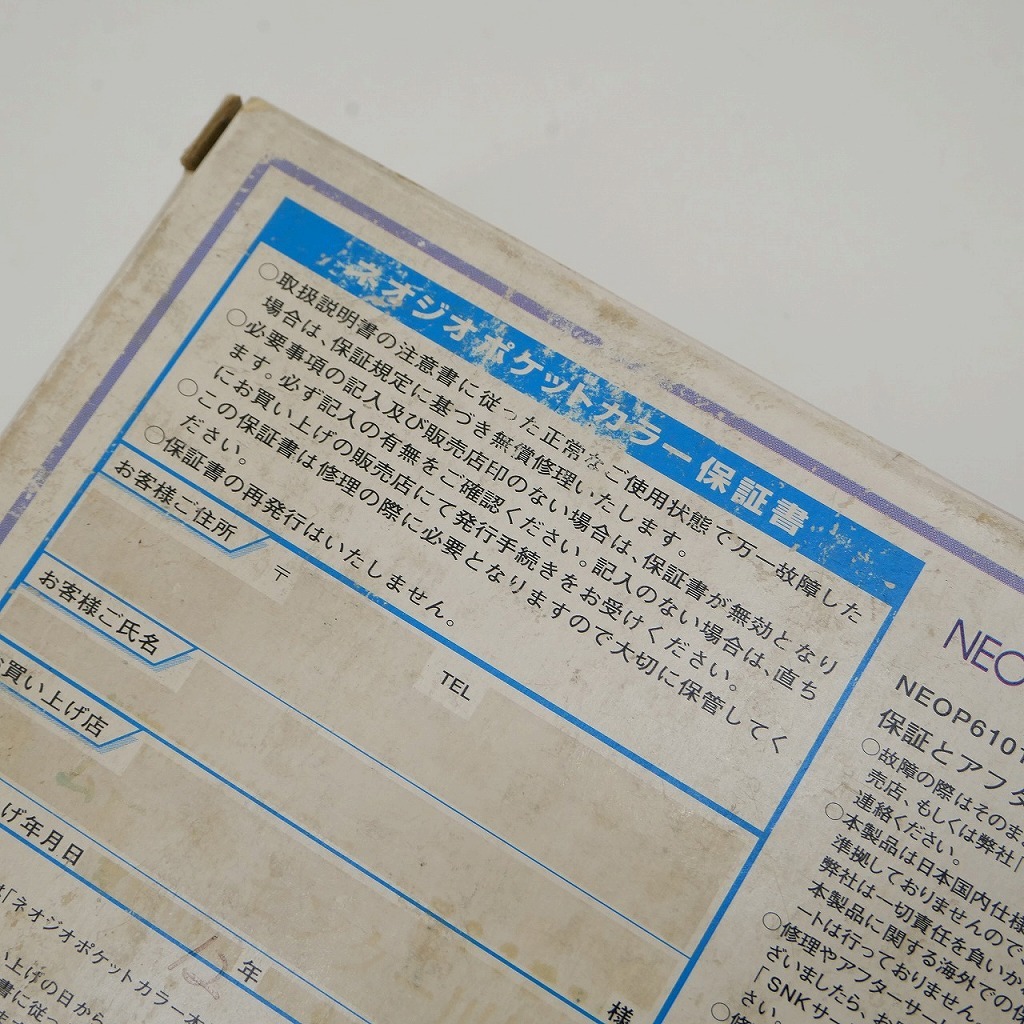 ネオジオポケットカラー保証書
○取扱説明書の注意書に従った正常なご使用状態で万一故障した
場合は、保証規定に基づき無償修理いたします。
○必要事項の記入及び販売店印のない場合は、保証書が無効となり
ます。必ず記入の有無をご確認ください。記入のない場合は、直ち
にお買い上げの販売店にて発行手続きをお受けください。
○この保証書は修理の際に必要となりますので大切に保管してく
ださい。
○保証書の再発行はいたしません。
お客様ご住所
〒
TEL
お客様ご氏名
様
買い上げ店
げ年月日
12年
「ネオジオポケットカラー本
い上げの日から
書に従っ
NEO
NEOP6101
保証とアフタ
○故障の際はそのま
売店、もしくは弊社「
連絡ください。
○本製品は日本国内仕様
準拠しておりませんので、
弊社は一切責任を負いか
本製品に関する海外での保
ートは行っておりません。
○修理やアフターサー
ざいましたら、お
「SNKサー
さい。
○修